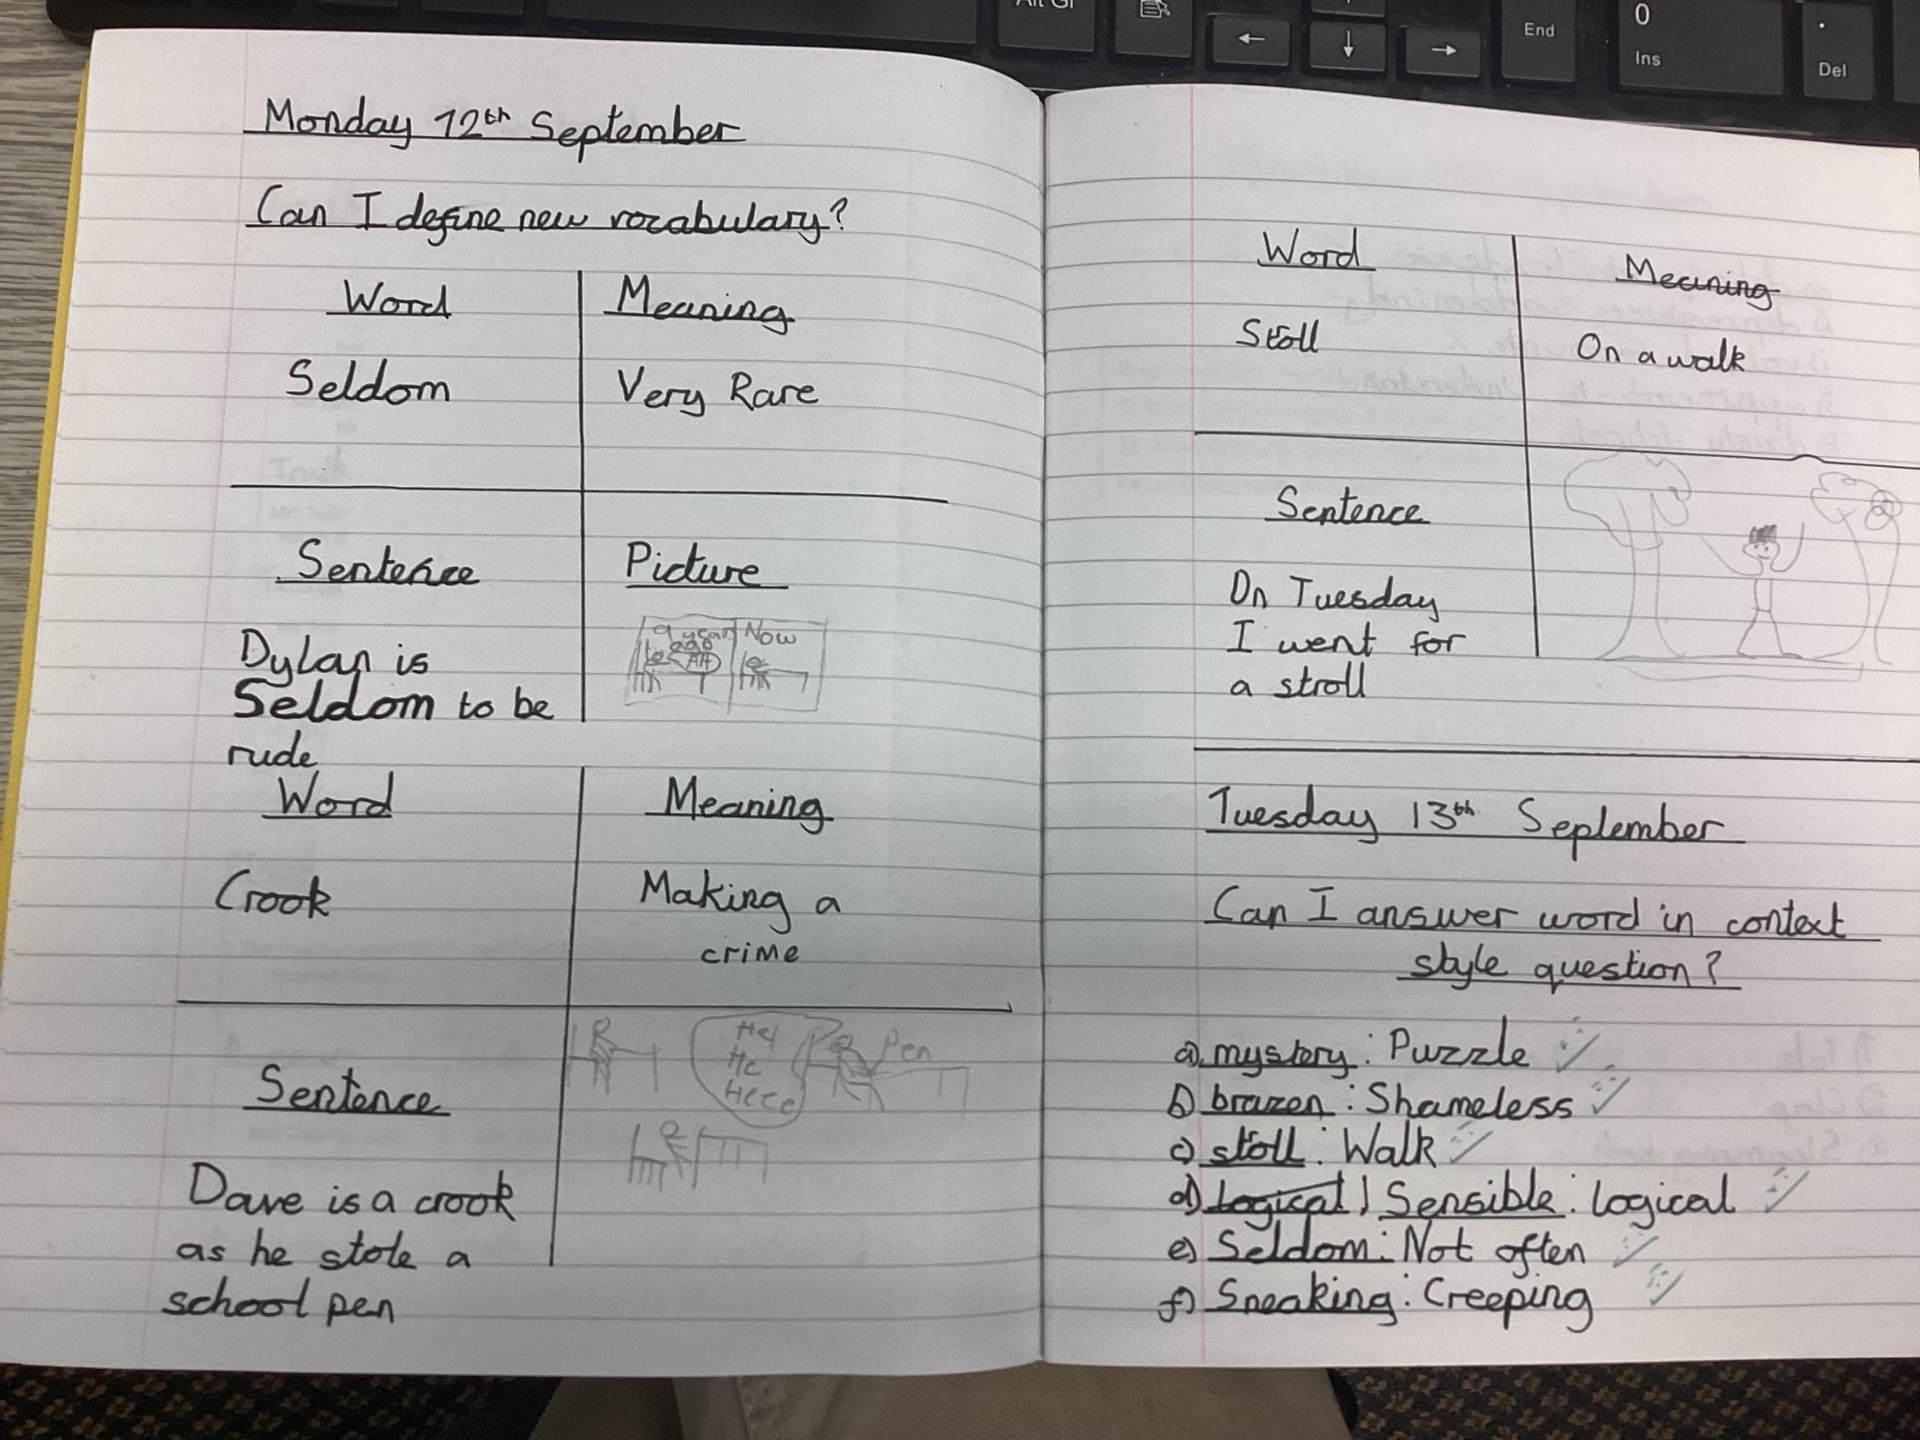 Alt Gr
End
0
Ins
.
Del
Monday 12th September
Can I define new vocabulary?
Word
Meaning
Seldom
Very Rare
Sentence
Picture
Dylan is
Seldom to be
rude
Now
AA
Word
Meaning
Crook
Making a
crime
Sentence
Dave is a crook
as he stole a
school pen
He
He
Hece
Pen
Word
Meaning
Stoll
On a walk
Sentence
On Tuesday
I went for
a stroll
Tuesday 13th September
Can I answer word in context
style question?
a) mystery: Puzzle
b) brazen: Shameless
c) stoll: Walk
d) Logical) Sensible: logical
e) Seldom: Not often
f) Sneaking: Creeping